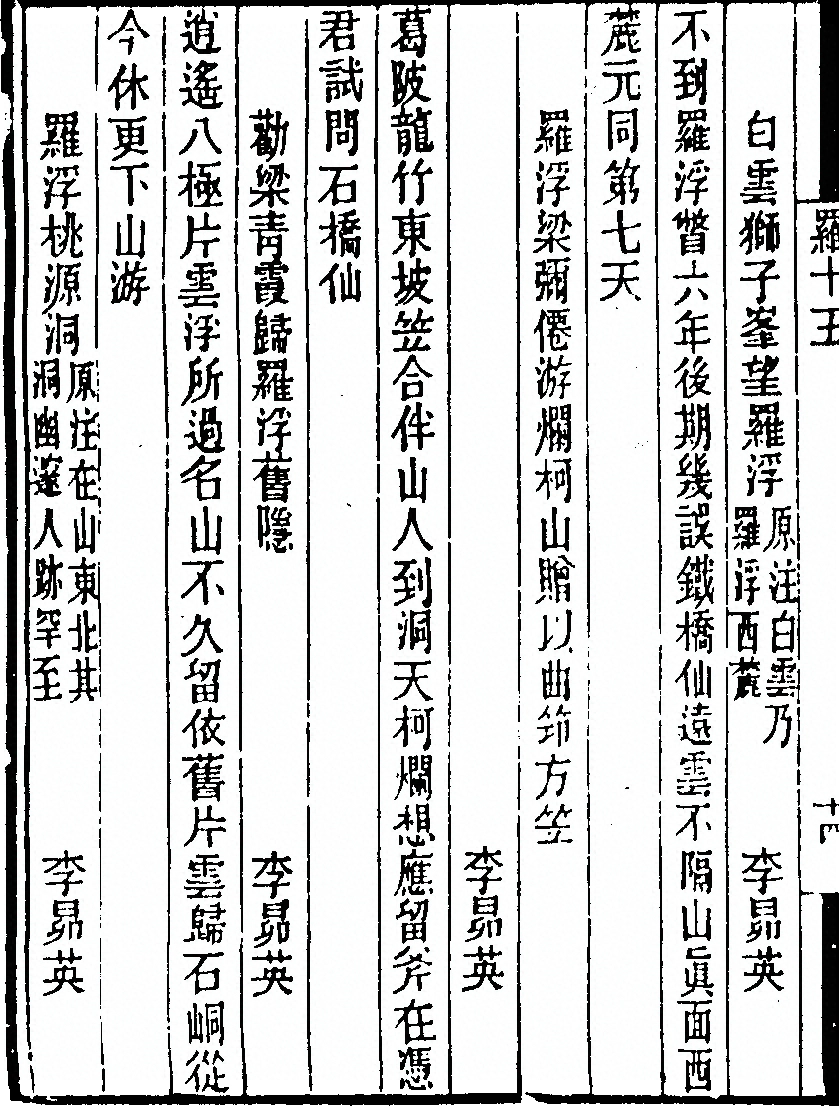 羅十五
白雲獅子峯望羅浮 原注白雲乃羅浮西麓 李昴英
不到羅浮瞥六年後期幾誤鐵橋仙遠雲不隔山眞面西
麓元同第七天
羅浮梁彌僊游爛柯山贈以曲笻方笠
李昴英
葛陂龍竹東坡笠合伴山人到洞天柯爛想應留斧在憑
君試問石橋仙
勸梁青霞歸羅浮舊隱 李昴英
逍遙八極片雲浮所過名山不久留依舊片雲歸石峒從
今休更下山游
羅浮桃源洞 原注在山東北其洞幽邃人跡罕至 李昴英